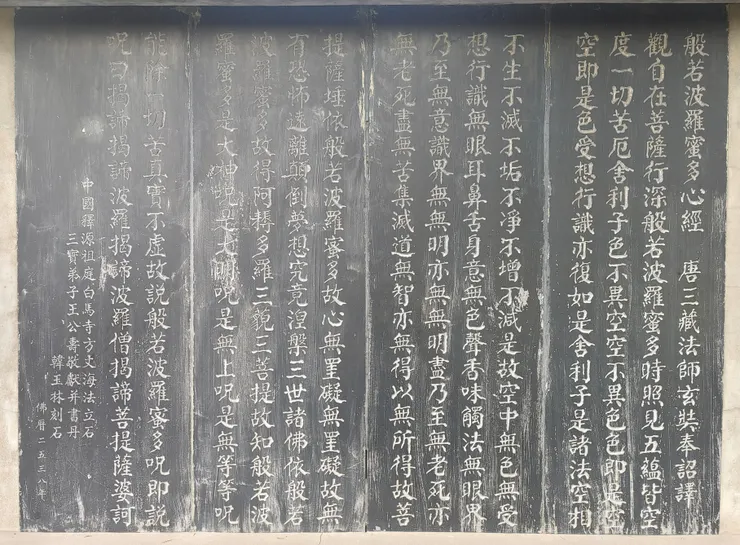 般若波羅蜜多心經 唐三藏法師玄奘奉詔譯
觀自在菩薩行深般若波羅蜜多時照見五蘊皆空
度一切苦厄舍利子色不異空空不異色色即是空
空即是色受想行識亦復如是舍利子是諸法空相
不生不滅不垢不净不增不減是故空中無色無受
想行識無眼耳鼻舌身意無色聲香味觸法無眼界
乃至無意識界無無明亦無無明盡乃至無老死亦
無老死盡無苦集滅道無智亦無得以無所得故菩
提薩埵依般若波羅蜜多故心無罣礙無罣礙故無
有恐怖遠離顛倒夢想究竟涅槃三世諸佛依般若
波羅蜜多故得阿耨多羅三藐三菩提故知般若波
羅蜜多是大神呪是大明呪是無上呪是無等等呪
能除一切苦真實不虛故說般若波羅蜜多呪即說
呪曰揭諦揭諦波羅揭諦波羅僧揭諦菩提薩婆訶
中國釋源祖庭白馬寺方丈海法立石
三寶弟子王公壽敬獻并書丹
韓玉林刻石
佛曆二五三八年